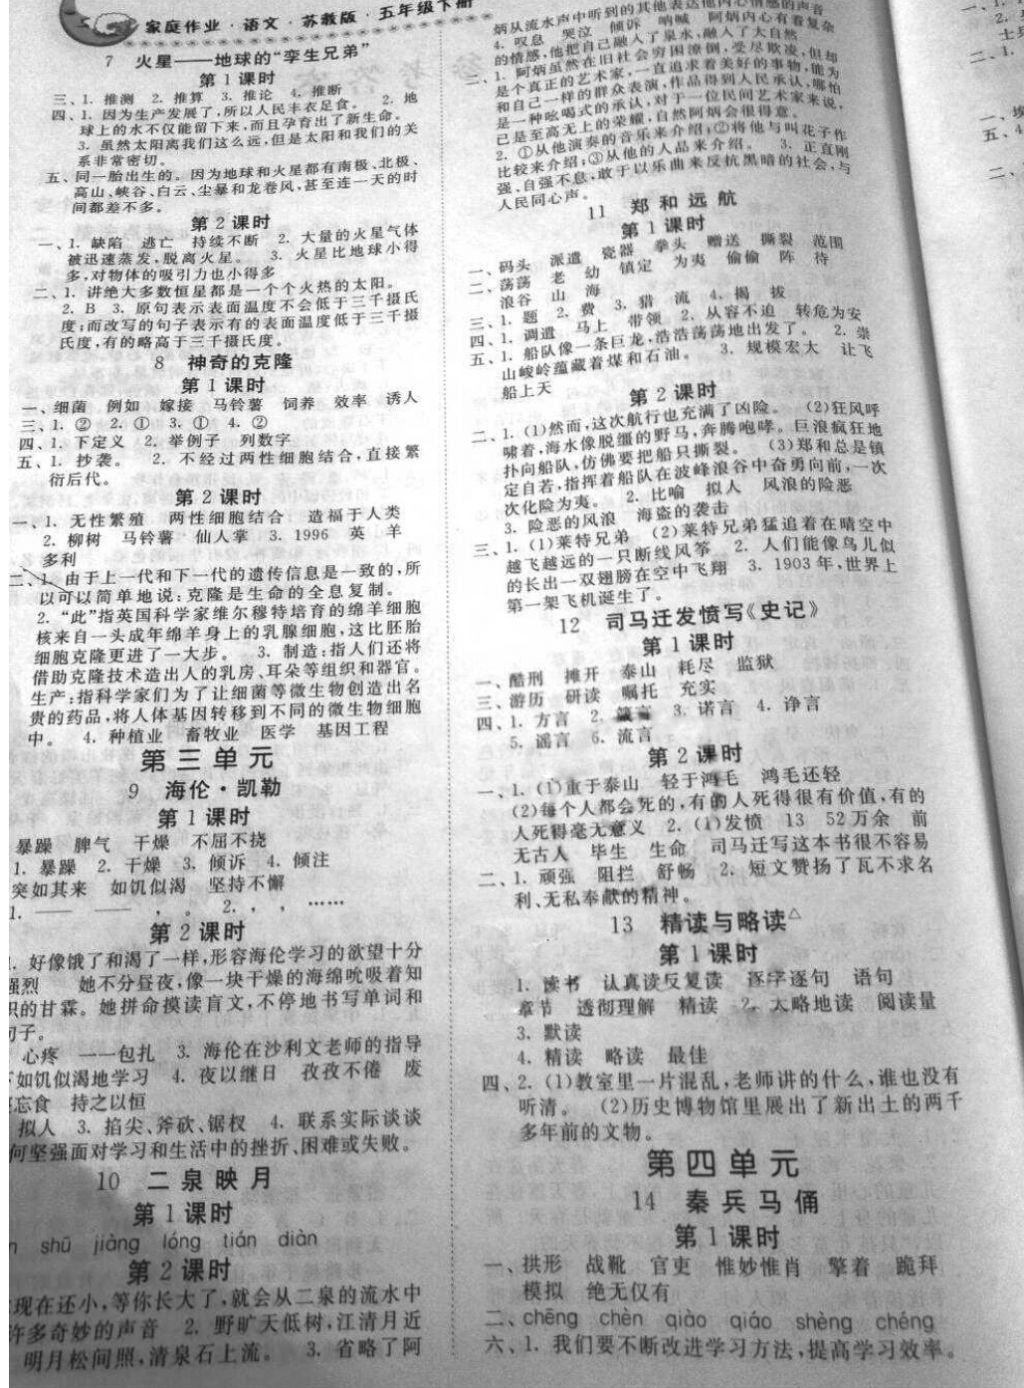 家庭作业·语文·苏教版·五年级下册
7 火星——地球的“孪生兄弟”
第1课时
三、1. 推测 2. 推算 3. 推论 4. 推断
四、1. 因为生产发展了,所以人民丰衣足食。 2. 地
球上的水不仅能留下来,而且孕育出了新生命。
3. 虽然太阳离我们这么远,但是太阳和我们的关
系非常密切。
五、同一胎出生的。因为地球和火星都有南极、北极、
高山、峡谷、白云、尘暴和龙卷风,甚至连一天的时
间都差不多。
第2课时
一、1. 缺陷 逃亡 持续不断 2. 大量的火星气体
被迅速蒸发,脱离火星。 3. 火星比地球小得
多,对物体的吸引力也小得多
二、1. 讲绝大多数恒星都是一个个火热的太阳。
2. B 3. 原句表示表面温度不会低于三千摄氏
度;而改写的句子表示有的表面温度低于三千摄
氏度,有的略高于三千摄氏度。
8 神奇的克隆
第1课时
一、细菌 例如 嫁接 马铃薯 饲养 效率 诱人
三、1. ② 2. ① 3. ① 4. ②
四、1. 下定义 2. 举例子 列数字
五、1. 抄袭。 2. 不经过两性细胞结合,直接繁
衍后代。
第2课时
一、1. 无性繁殖 两性细胞结合 造福于人类
2. 柳树 马铃薯 仙人掌 3. 1996 英 羊
多利
二、1. 由于上一代和下一代的遗传信息是一致的,所
以可以简单地说:克隆是生命的全息复制。
2. “此”指英国科学家维尔穆特培育的绵羊细胞
核来自一头成年绵羊身上的乳腺细胞,这比胚胎
细胞克隆更进了一大步。 3. 制造:指人们还将
借助克隆技术造出人的乳房、耳朵等组织和器官。
生产:指科学家们为了让细菌等微生物创造出名
贵的药品,将人体基因转移到不同的微生物细胞
中。 4. 种植业 畜牧业 医学 基因工程
第三单元
9 海伦·凯勒
第1课时
暴躁 脾气 干燥 不屈不挠
1. 暴躁 2. 干燥 3. 倾诉 4. 倾注
突如其来 如饥似渴 坚持不懈
1. —— —— , 。 2. , , ……
第2课时
. 好像饿了和渴了一样,形容海伦学习的欲望十分
强烈 她不分昼夜,像一块干燥的海绵吮吸着知
识的甘霖。她拼命摸读盲文,不停地书写单词和
句子。
心疼 ——包扎 3. 海伦在沙利文老师的指导
下如饥似渴地学习 4. 夜以继日 孜孜不倦 废
寝忘食 持之以恒
拟人 3. 掐尖、斧砍、锯杈 4. 联系实际谈谈
何坚强面对学习和生活中的挫折、困难或失败。
10 二泉映月
第1课时
shū jiàng lóng tián diàn
第2课时
现在还小,等你长大了,就会从二泉的流水中
许多奇妙的声音 2. 野旷天低树,江清月近
明月松间照,清泉石上流。 3. 省略了阿
炳从流水声中听到的其他表达他内心情感的声音
4. 叹息 哭泣 倾诉 呐喊 阿炳内心有着复杂
的情感,他把自己融入了泉水,融入了大自然
二、1. 阿炳虽然在旧社会穷困潦倒,受尽欺凌,但却
是个真正的艺术家,一直追求着美好的事物,能为
和自己一样的群众表演,作品得到人民承认,哪怕
是一种吆喝式的承认,对于一位民间艺术家来说,
已是至高无上的荣耀,自然阿炳会很得意。
2. ①从他演奏的音乐来介绍;②将他与叫花子作
比较来介绍;③从他的人品来介绍。 3. 正直刚
强、自强不息,敢于以乐曲来反抗黑暗的社会,与
人民同心声。
11 郑和远航
第1课时
一、码头 派遣 瓷器 拳头 赠送 撕裂 范围
二、荡荡 老 幼 镇定 为夷 偷偷 阵 待
浪谷 山 海
三、1. 题 2. 费 3. 猎 流 4. 揭 拔
四、1. 调遣 马上 带领 2. 从容不迫 转危为安
五、1. 船队像一条巨龙,浩浩荡荡地出发了。 2. 崇
山峻岭蕴藏着煤和石油。 3. 规模宏大 让飞
船上天
第2课时
二、1. (1)然而,这次航行也充满了凶险。 (2)狂风呼
啸着,海水像脱缰的野马,奔腾咆哮。巨浪疯狂地
扑向船队,仿佛要把船只撕裂。 (3)郑和总是镇
定自若,指挥着船队在波峰浪谷中奋勇向前,一次
次化险为夷。 2. 比喻 拟人 风浪的险恶
3. 险恶的风浪 海盗的袭击
三、1. (1)莱特兄弟 (2)莱特兄弟猛追着在晴空中
越飞越远的一只断线风筝 2. 人们能像鸟儿似
的长出一双翅膀在空中飞翔 3. 1903年,世界上
第一架飞机诞生了。
12 司马迁发愤写《史记》
第1课时
一、酷刑 摊开 泰山 耗尽 监狱
三、游历 研读 嘱托 充实
四、1. 方言 2. 箴言 3. 诺言 4. 诤言
5. 谣言 6. 流言
第2课时
一、1. (1)重于泰山 轻于鸿毛 鸿毛还轻
(2)每个人都会死的,有的人死得很有价值,有的
人死得毫无意义 2. (1)发愤 13 52万余 前
无古人 毕生 生命 司马迁写这本书很不容易
二、1. 顽强 阻拦 舒畅 2. 短文赞扬了瓦不求名
利、无私奉献的精神。
13 精读与略读△
第1课时
1. 读书 认真读反复读 逐字逐句 语句
章节 透彻理解 精读 2. 大略地读 阅读量
3. 默读
4. 精读 略读 最佳
四、2. (1)教室里一片混乱,老师讲的什么,谁也没有
听清。 (2)历史博物馆里展出了新出土的两千
多年前的文物。
第四单元
14 秦兵马俑
第1课时
一、拱形 战靴 官吏 惟妙惟肖 擎着 跪拜
模拟 绝无仅有
二、chēng chèn qiào qiáo shèng chéng
六、1. 我们要不断改进学习方法,提高学习效率。